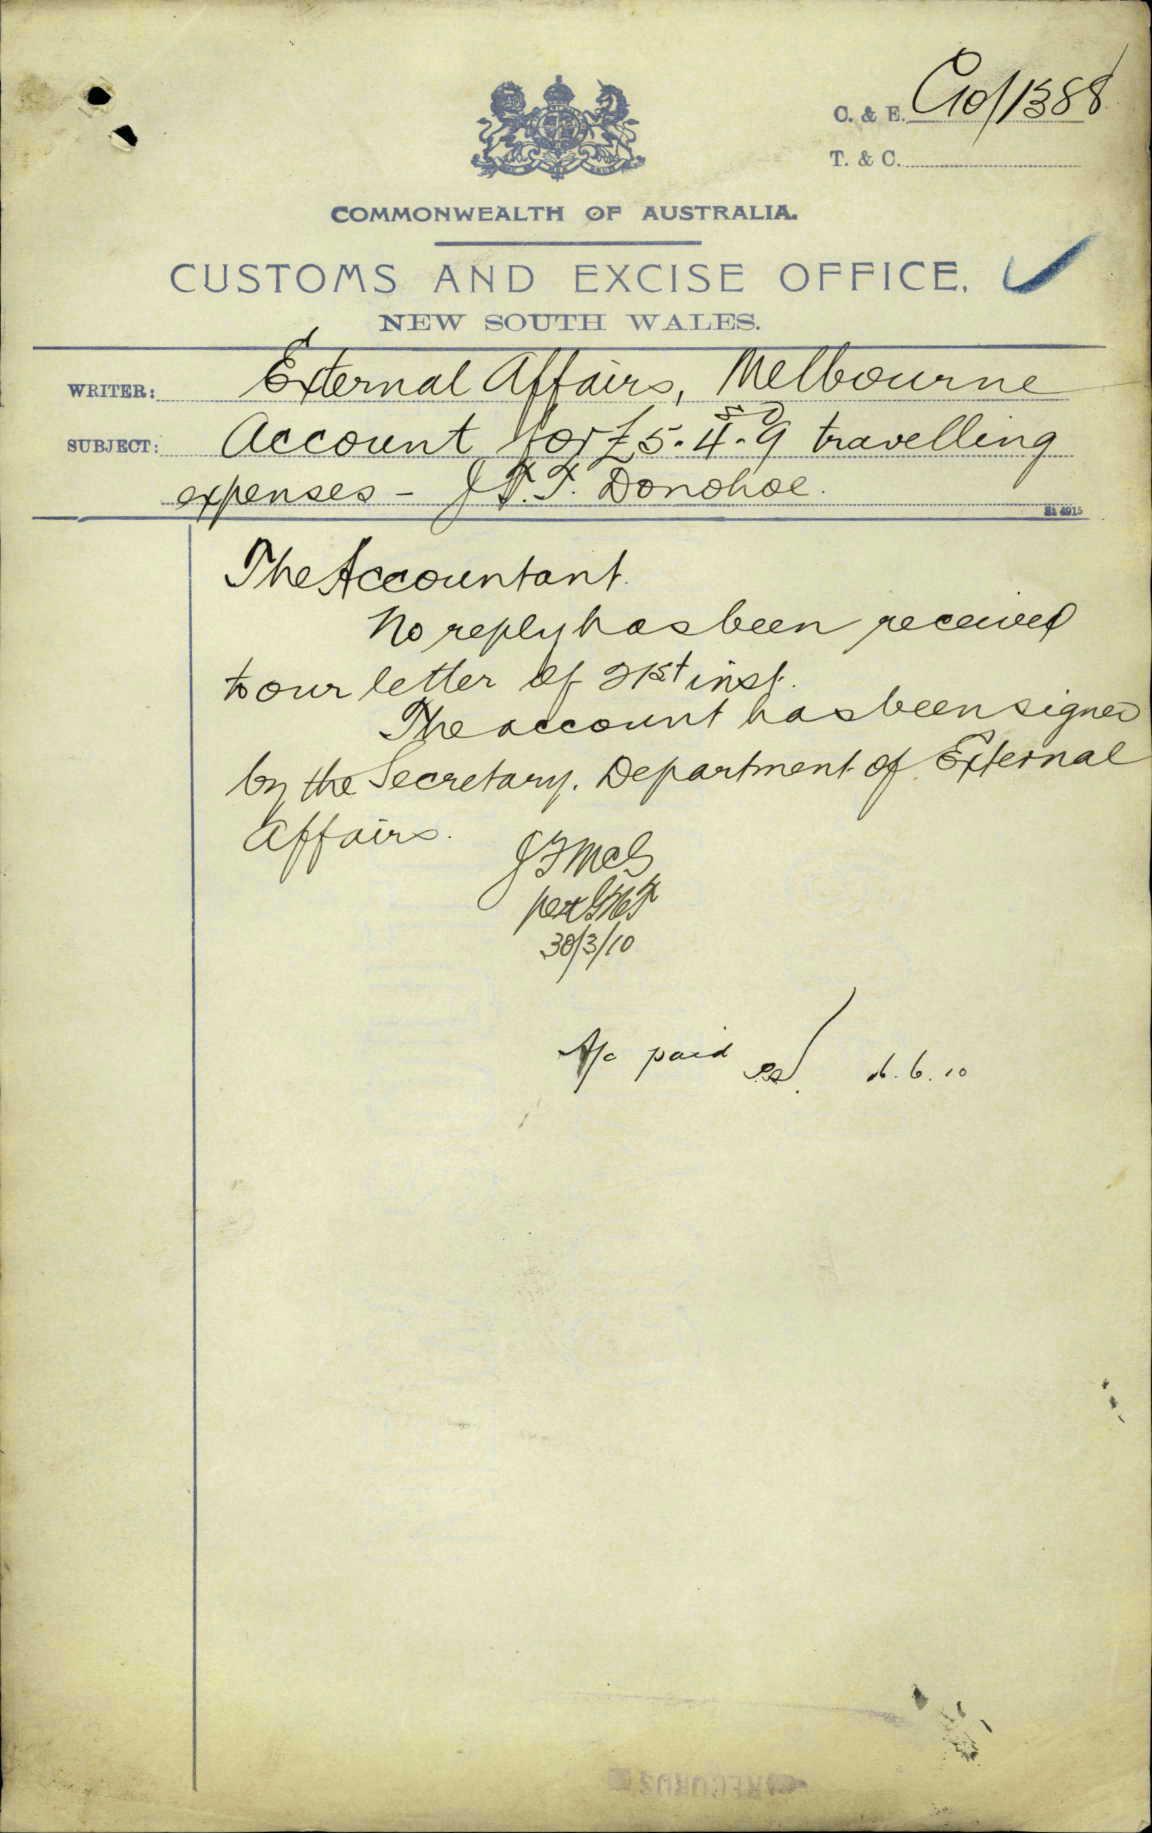 C. & E. C10/1388
T. & C.
COMMONWEALTH OF AUSTRALIA.
CUSTOMS AND EXCISE OFFICE,
NEW SOUTH WALES.
WRITER: External Affairs, Melbourne
SUBJECT: Account for £5. 4s. 9d travelling
expenses - J. T. T. Donohoe.
The Accountant.
No reply has been received
to our letter of 21st inst.
The account has been signed
by the Secretary. Department of External
Affairs.
per
30/3/10
A/c paid 6.10